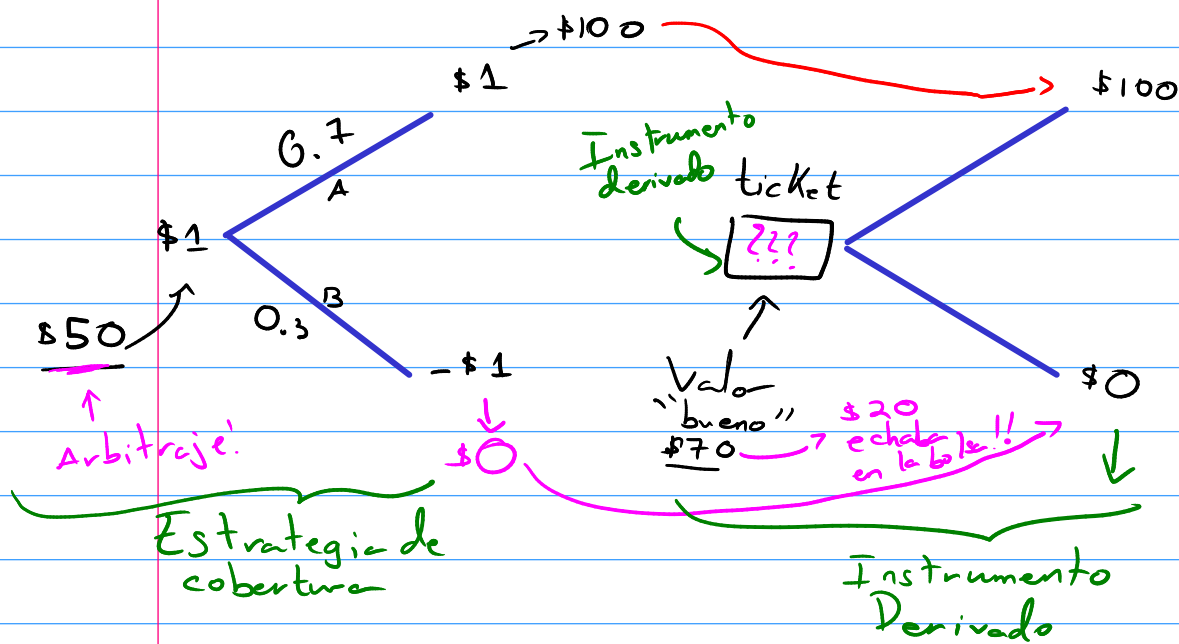 → $100
$100
$1
0.7
A
Instrumento
derivado
ticket
$1
???
B
0.3
$50
- $1
Valor
"bueno"
$70
$20
echaba
en la bolsa!!
$0
Arbitraje!
$0
Estrategia de
cobertura
Instrumento
Derivado